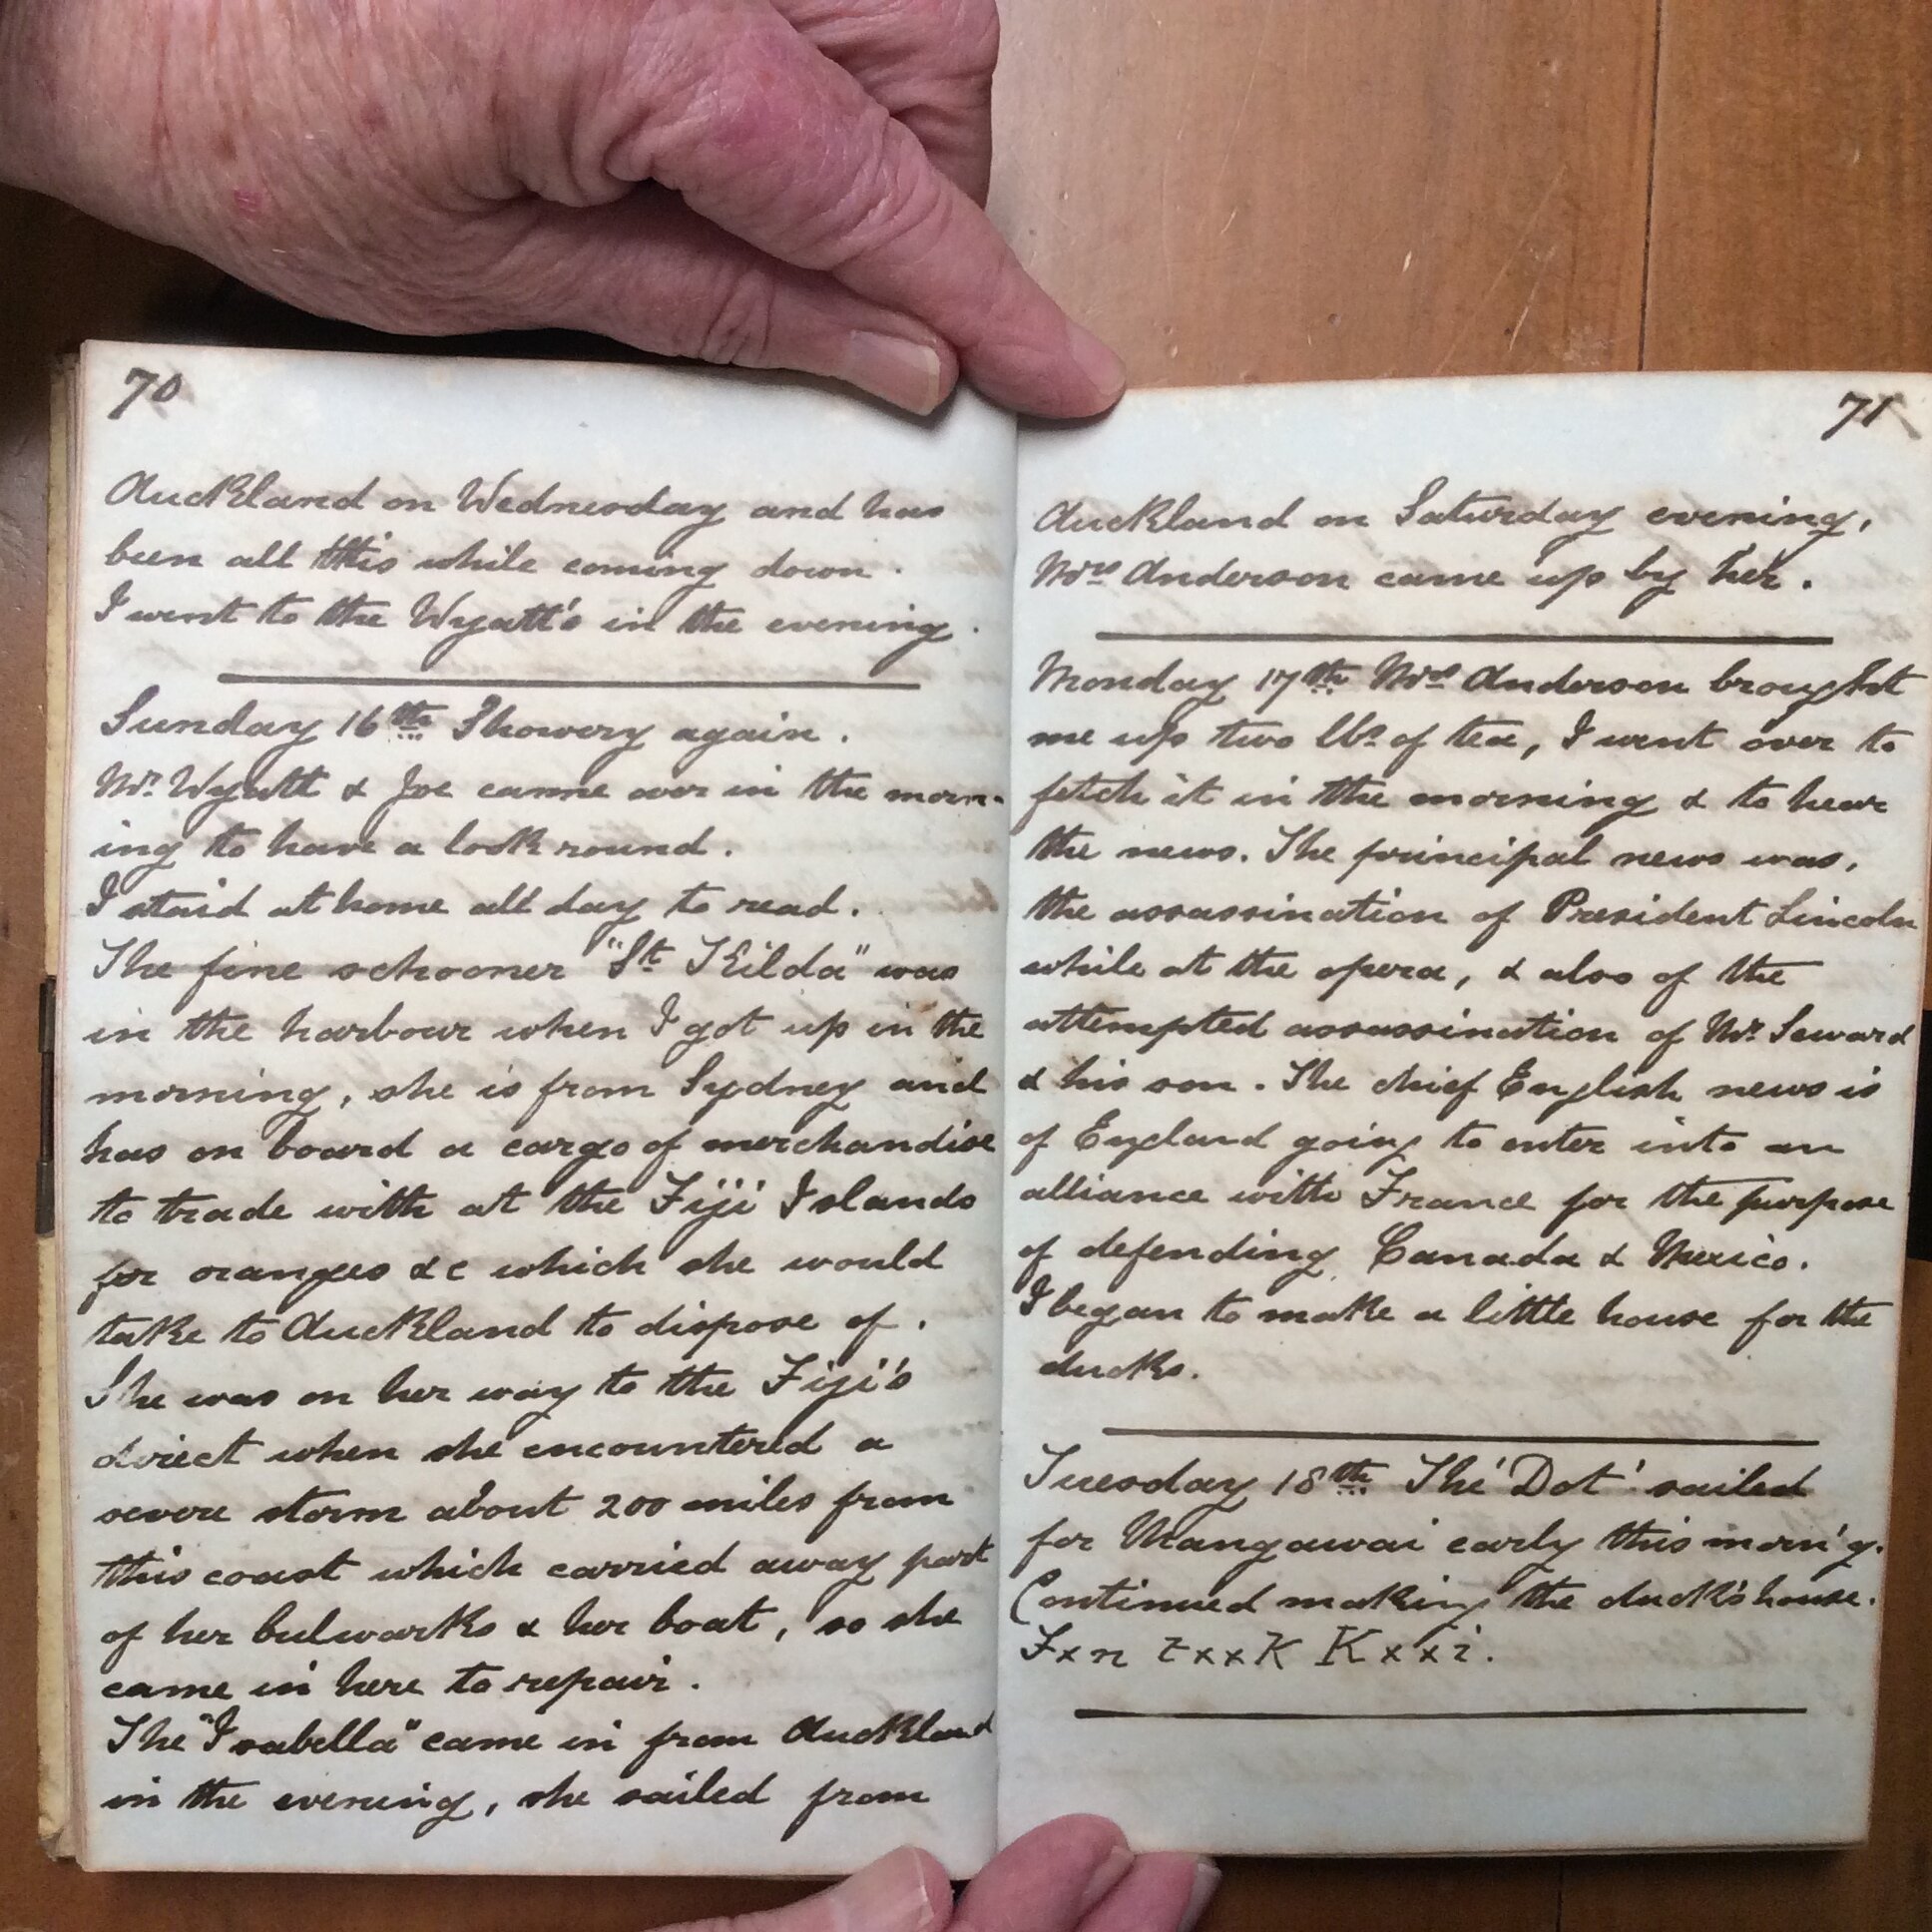 70
Auckland on Wednesday and has
been all this while coming down.
I went to the Wyatt's in the evening.
Sunday 16th Showery again.
Mr. Wyatt & Joe came over in the morn-
ing to have a look round.
I staid at home all day to read.
The fine schooner "St Kilda" was
in the harbour when I got up in the
morning, she is from Sydney and
has on board a cargo of merchandise
to trade with at the Fiji Islands
for oranges &c which she would
take to Auckland to dispose of.
She was on her way to the Fiji's
direct when she encountered a
severe storm about 200 miles from
this coast which carried away part
of her bulwarks & her boat, so she
came in here to repair.
The "Isabella" came in from Auckland
in the evening, she sailed from
71
Auckland on Saturday evening,
Mrs Anderson came up by her.
Monday 17th Mrs Anderson brought
me up two lbs of tea, I went over to
fetch it in the morning & to hear
the news. The principal news was,
the assassination of President Lincoln
while at the opera, & also of the
attempted assassination of Mr Seward
& his son. The chief English news is
of England going to enter into an
alliance with France for the purpose
of defending Canada & Mexico.
I began to make a little house for the
ducks.
Tuesday 18th The 'Dot' sailed
for Mangawai early this morn'g.
Continued making the duck's house.
Fxn txxK Kxxi.